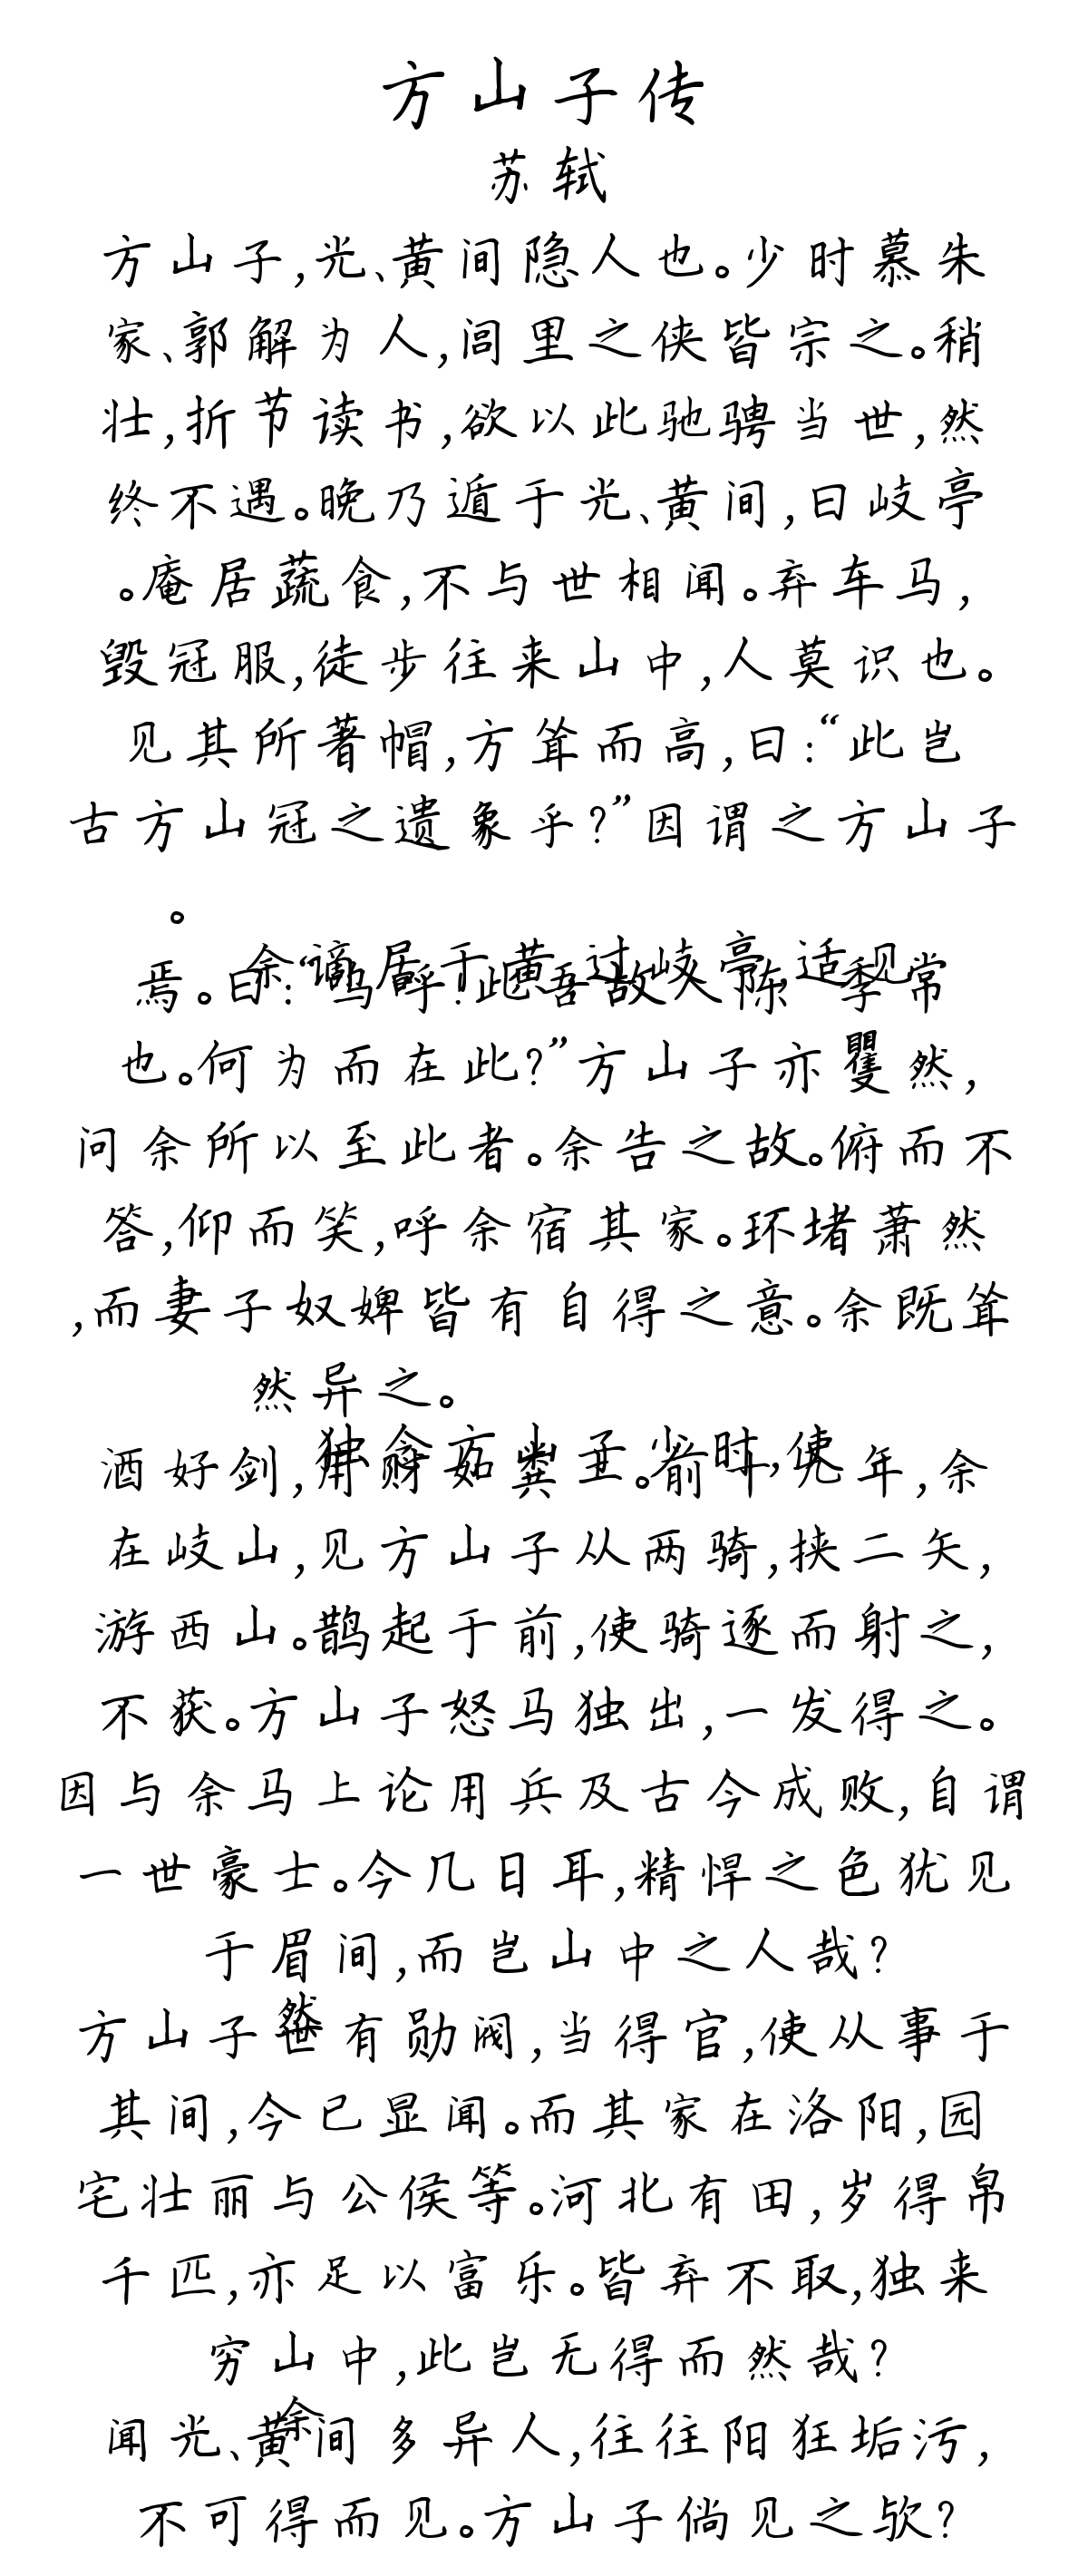 方山子传
苏轼
方山子,光、黄间隐人也。少时慕朱
家、郭解为人,闾里之侠皆宗之。稍
壮,折节读书,欲以此驰骋当世,然
终不遇。晚乃遁于光、黄间,曰岐亭
。庵居蔬食,不与世相闻。弃车马,
毁冠服,徒步往来山中,人莫识也。
见其所著帽,方耸而高,曰:“此岂
古方山冠之遗象乎?”因谓之方山子
。
余谪居于黄,过岐亭,适见
焉。曰:“呜呼!此吾故人陈 季常
也。何为而在此?”方山子亦矍然,
问余所以至此者。余告之故。俯而不
答,仰而笑,呼余宿其家。环堵萧然
,而妻子奴婢皆有自得之意。余既耸
然异之。
独念方山子少时,使
酒好剑,用财如粪土。前十九年,余
在岐山,见方山子从两骑,挟二矢,
游西山。鹊起于前,使骑逐而射之,
不获。方山子怒马独出,一发得之。
因与余马上论用兵及古今成败,自谓
一世豪士。今几日耳,精悍之色犹见
于眉间,而岂山中之人哉?
然
方山子世有勋阀,当得官,使从事于
其间,今已显闻。而其家在洛阳,园
宅壮丽与公侯等。河北有田,岁得帛
千匹,亦足以富乐。皆弃不取,独来
穷山中,此岂无得而然哉?
余
闻光、黄间多异人,往往阳狂垢污,
不可得而见。方山子倘见之欤?